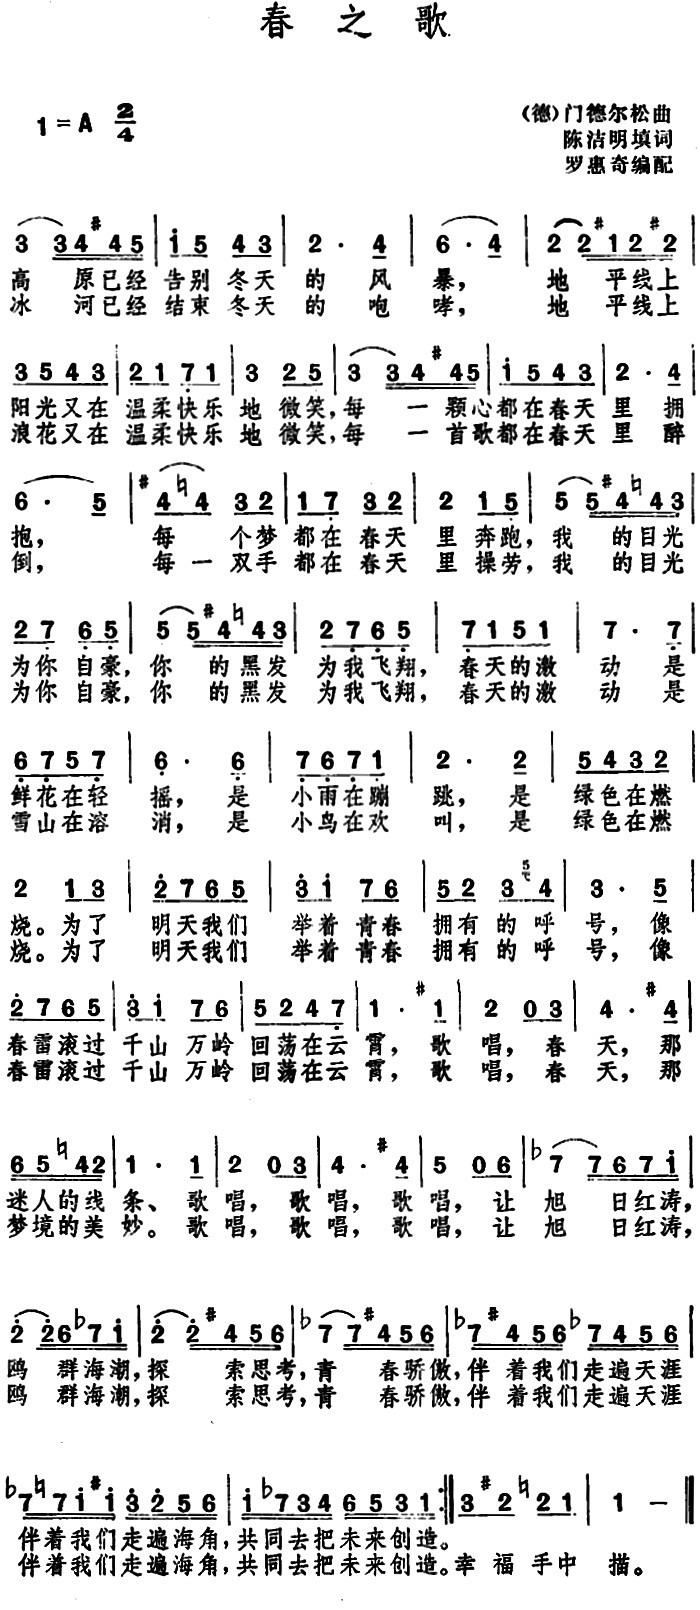 春之歌
1=A 2/4
(德)门德尔松曲
陈洁明填词
罗惠奇编配
3 34#45 | i5 43 | 2· 4 | 6·4 | 2 2#12 #2 |
高 原已经 告别 冬天 的 风 暴, 地 平线上
冰 河已经 结束 冬天 的 咆 哮, 地 平线上
3543 | 2171 | 3 25 | 3 34#45 | i543 | 2· 4 |
阳光又在 温柔快乐 地 微笑,每 一 颗心都在春天 里 拥
浪花又在 温柔快乐 地 微笑,每 一 首歌都在春天 里 醉
6· 5 | #4♮4 32 | 17 32 | 2 15 | 5 5#4♮43 |
抱, 每 个梦 都在 春天 里 奔跑,我 的目光
倒, 每 一 双手 都在 春天 里 操劳,我 的目光
27 65 | 5 5#4♮43 | 2765 | 7151 | 7· 7 |
为你 自豪,你 的黑发 为我飞翔, 春天的激 动 是
为你 自豪,你 的黑发 为我飞翔, 春天的激 动 是
6757 | 6· 6 | 7671 | 2· 2 | 5432 |
鲜花在轻 摇, 是 小雨在蹦 跳, 是 绿色在燃
雪山在溶 消, 是 小鸟在欢 叫, 是 绿色在燃
2 13 | 2765 | 3i 76 | 52 3 5 4 | 3· 5 |
烧。为了 明天我们 举着 青春 拥有 的呼 号, 像
烧。为了 明天我们 举着 青春 拥有 的呼 号, 像
2765 | 3i 76 | 5247 | 1· #1 | 2 03 | 4· #4 |
春雷滚过 千山 万岭 回荡在云 霄, 歌 唱, 春 天, 那
春雷滚过 千山 万岭 回荡在云 霄, 歌 唱, 春 天, 那
65♮42 | 1· 1 | 2 03 | 4· #4 | 5 06 | ♭7 767i |
迷人的线 条、 歌 唱, 歌 唱, 歌 唱, 让 旭 日红涛,
梦境的美 妙。 歌 唱, 歌 唱, 歌 唱, 让 旭 日红涛,
2 26♭7i | 2 2#456 | ♭7 7#456 | ♭7 7#456 | ♭7456 |
鸥 群海潮,探 索思考,青 春骄傲,伴 着我们走遍天涯
鸥 群海潮,探 索思考,青 春骄傲,伴 着我们走遍天涯
♭7♮7i#i 3256 | i♭734 6531 :‖ 3 #2 21 | 1 — ‖
伴着我们走遍海角,共同去把未来创造。
伴着我们走遍海角,共同去把未来创造。幸福手中 描。